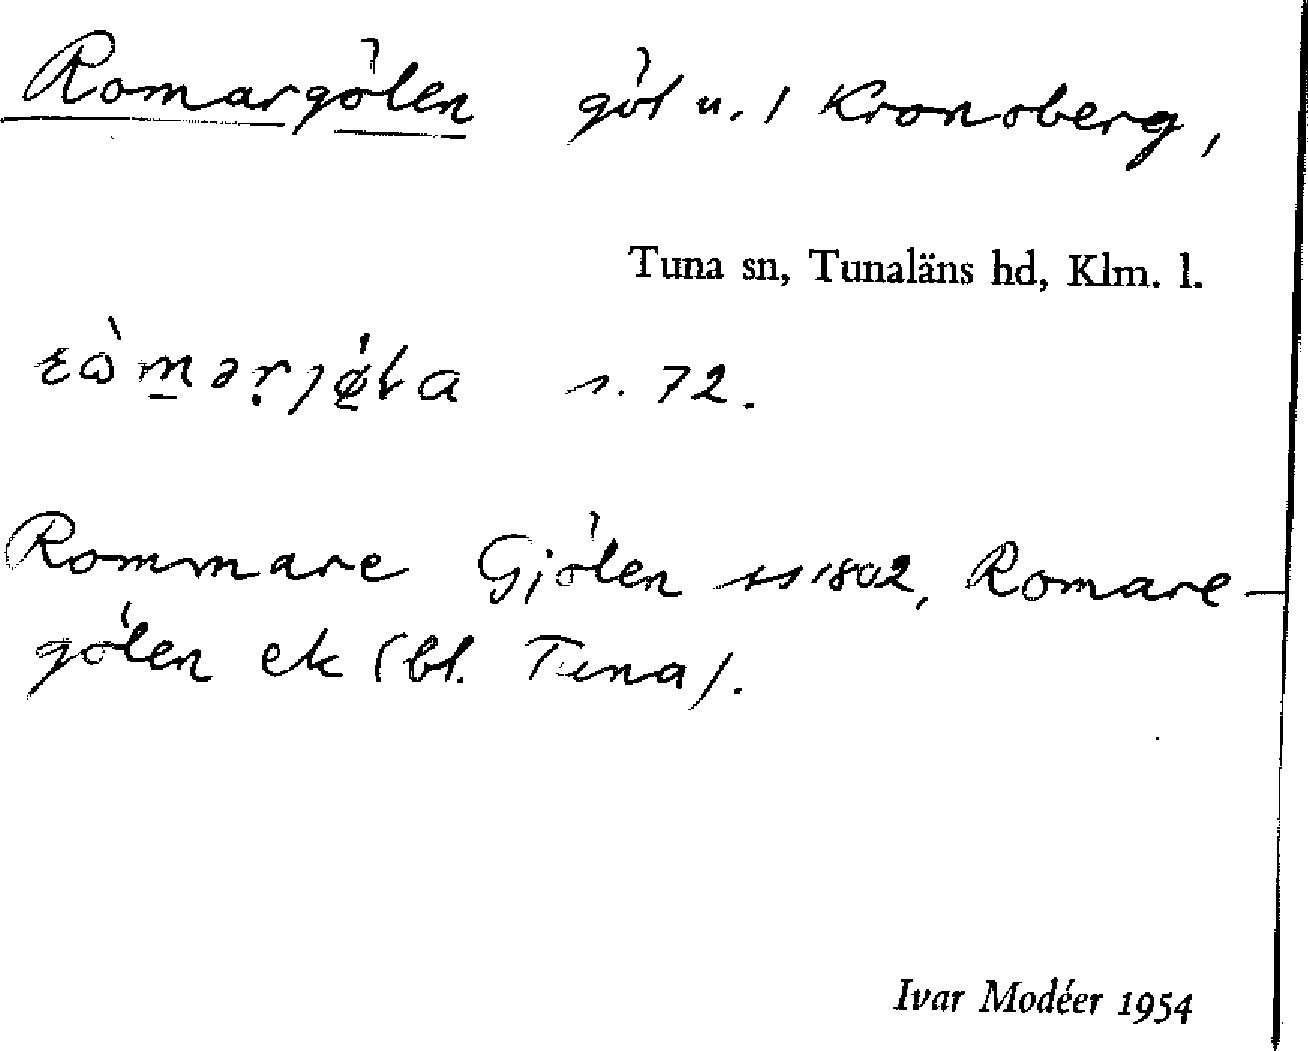 Romargölen göl u. / Kronsberg,
Tuna sn, Tunaläns hd, Klm. l.
s. 72.
Rommare Gjölen ss 1802, Romare-
gölen ek (bl. Tuna).
Ivar Modéer 1954